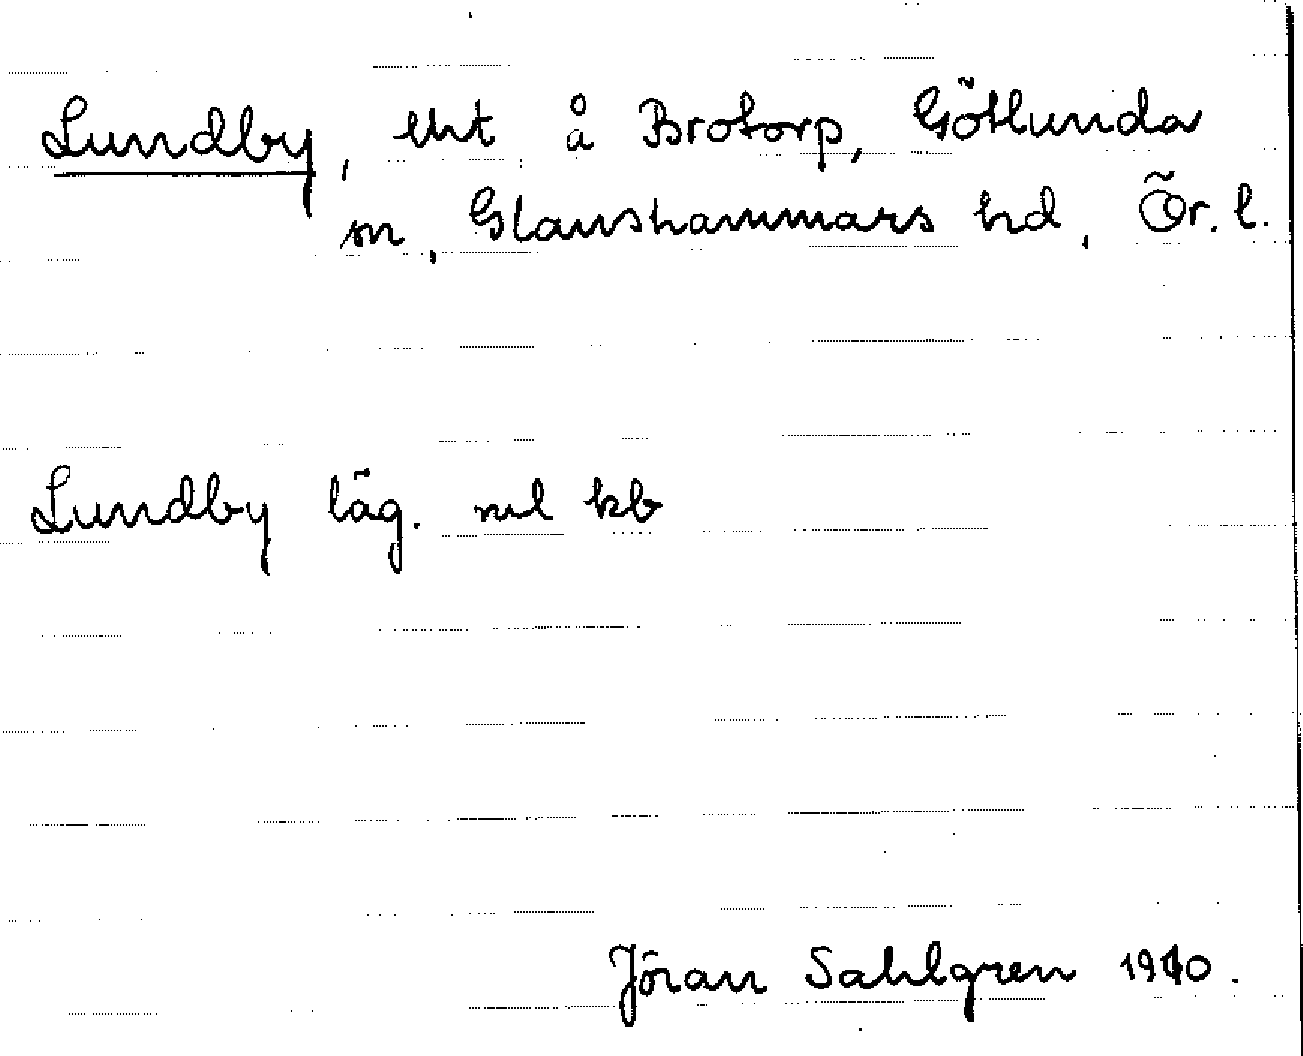 Lundby, å Brotorp, Götlunda
sn, Glanshammars hd, Ör. l.
Lundby läg. enl kb
Jöran Sahlgren 1910.